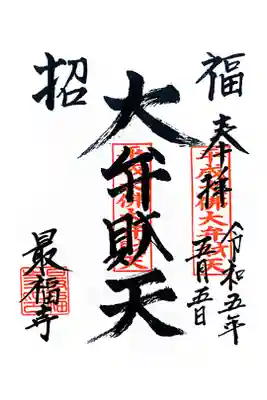 福
奉拝
令和五年
五月五日
大弁財天
招
最福寺